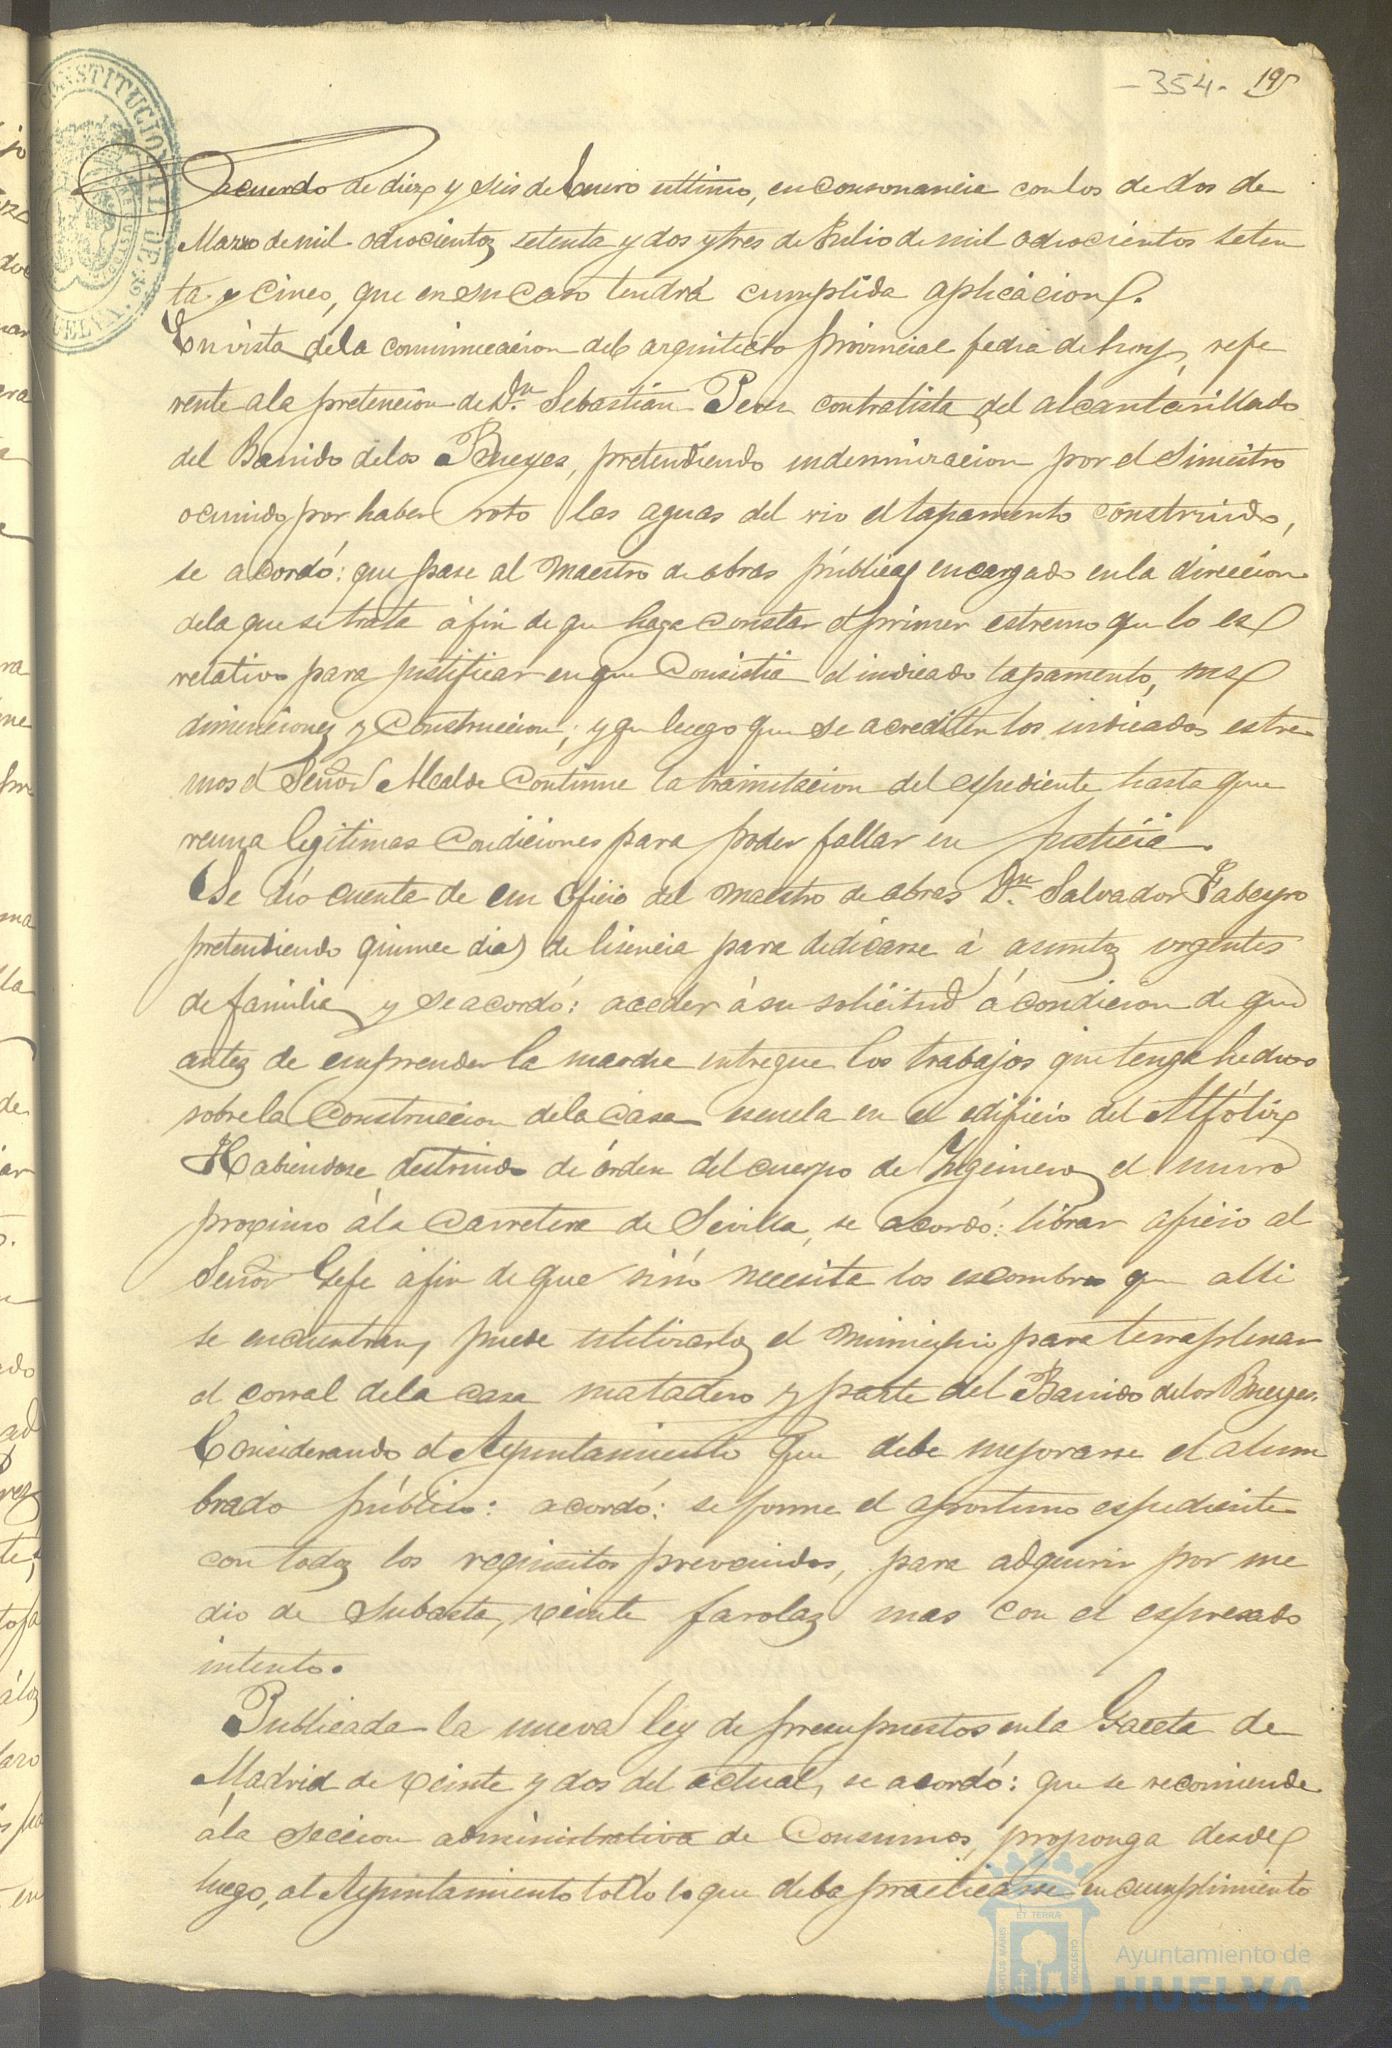 - 354 - 195
CONSTITUCIONAL DE
HUELVA
acuerdo de diez y seis de Enero ultimo, en consonancia con los de dos de
Marzo de mil ochocientoz setenta y dos y tres de Julio de mil ochocientos seten
ta y cinco, que en su caso tendrá cumplida aplicacion.
En vista de la comunicacion del arquitecto provincial fecha de hoy, refe
rente a la pretencion de Dn. Sebastian Perez contratista del alcantarillado
del Barrido de los Bueyes, pretendiendo indemnizacion por el Siniestro
ocurrido por haber roto las aguas del rio el tapamento construido,
se acordó: que pase al Maestro de obras públicas encargado en la direccion
de la que se trata á fin de que haga constar el primer estremo que lo es
relativo para justificar en que consistia el indicado tapamento, sus
dimenciones y construccion; y que luego que se acrediten los indicados estre
mos el Señor Alcalde continue la tramitacion del espediente hasta que
reuna legitimas condiciones para poder fallar en justicia.
Se dio cuenta de un oficio del maestro de obras Dn. Salvador Fabeyro
pretendiendo quince dias de lisencia para dedicarse á asuntoz urgentes
de familia y se acordó: acceder á su solicitud á condicion de que
antez de emprender la marcha entregue los trabajos que tenga hechos
sobre la construccion de la casa escuela en el edificio del Alfóliz
Habiendose destruido de órden del cuerpo de Ingenieros el muro
proximo á la carretera de Sevilla, se acordó: librar oficio al
Señor Gefe á fin de que sinó necesita los escombros que alli
se encuentran, puede utilizarlos el municipio para terraplenar
el corral de la casa matadero y parte del Barrido de los Bueyes.
Considerando el Ayuntamiento que debe mejorarse el alum
brado público: acordó: se forme el oportuno espediente
con todoz los requisitos prevenidos, para adquirir por me
dio de subasta, veinte farolaz mas con el espresado
intento.
Publicada la nueva ley de presupuestos en la Gaceta de
Madrid de veinte y dos del actual, se acordó: que se recomiende
á la seccion administrativa de Consumos, proponga desde
luego, al Ayuntamiento todo lo que deba practicarse en cumplimiento
ET TERRA
PORTUS MARIS
CUSTODIA
Ayuntamiento de
HUELVA